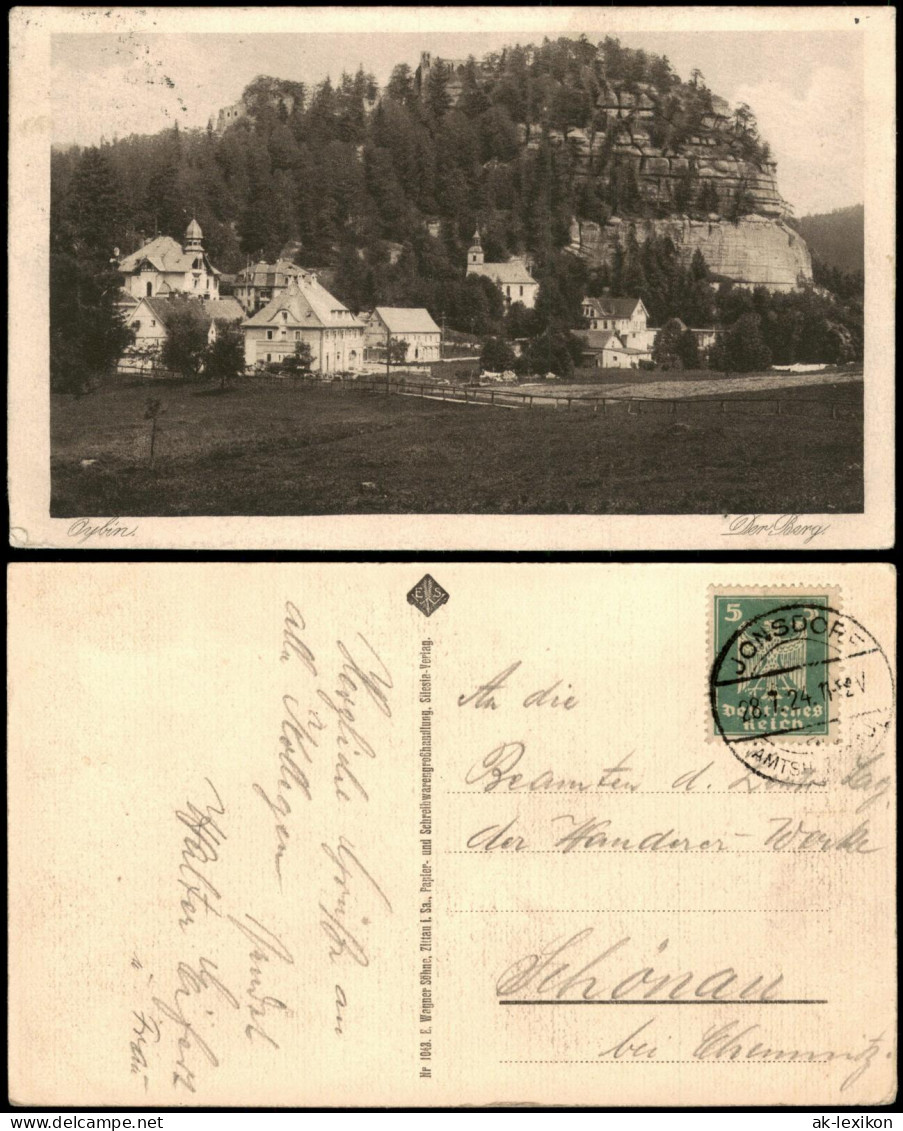 Oybin.
Der Berg.
E. S.
Herzliche Grüße an
alle Kollegen
sendet
Walter
u. Frau
Nr 1043. E. Wagner Söhne, Zittau i. Sa., Papier- und Schreibwarengroßhandlung. Silesia-Verlag.
5 5
Deutsches
Reich
JONSDORF
28.7.24. 11-12V
AMTSH
An die
Beamten d.
der Wanderer-Werke
Schönau
bei Chemnitz.
www.delcampe.net
ak-lexikon